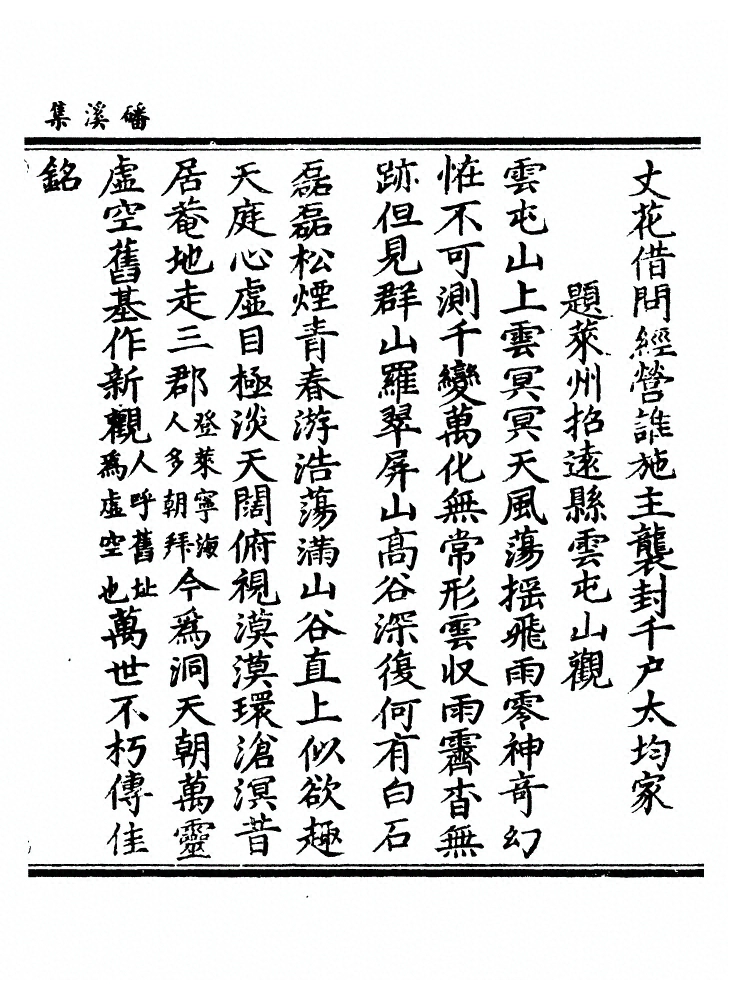 磻溪集
丈花借問經營誰施主襲封千户太均家
題萊州招遠縣雲屯山觀
雲屯山上雲冥冥天風蕩摇飛雨零神竒幻
恠不可測千變萬化無常形雲収雨霽杳無
跡但見群山羅翠屏山高谷深復何有白石
磊磊松煙青春游浩蕩滿山谷直上似欲趣
天庭心虛目極淡天闊俯視漠漠環滄溟昔
居菴地走三郡登萊寧海人多朝拜今爲洞天朝萬靈
虛空舊基作新觀人呼舊址爲虛空也萬世不朽傳佳
銘